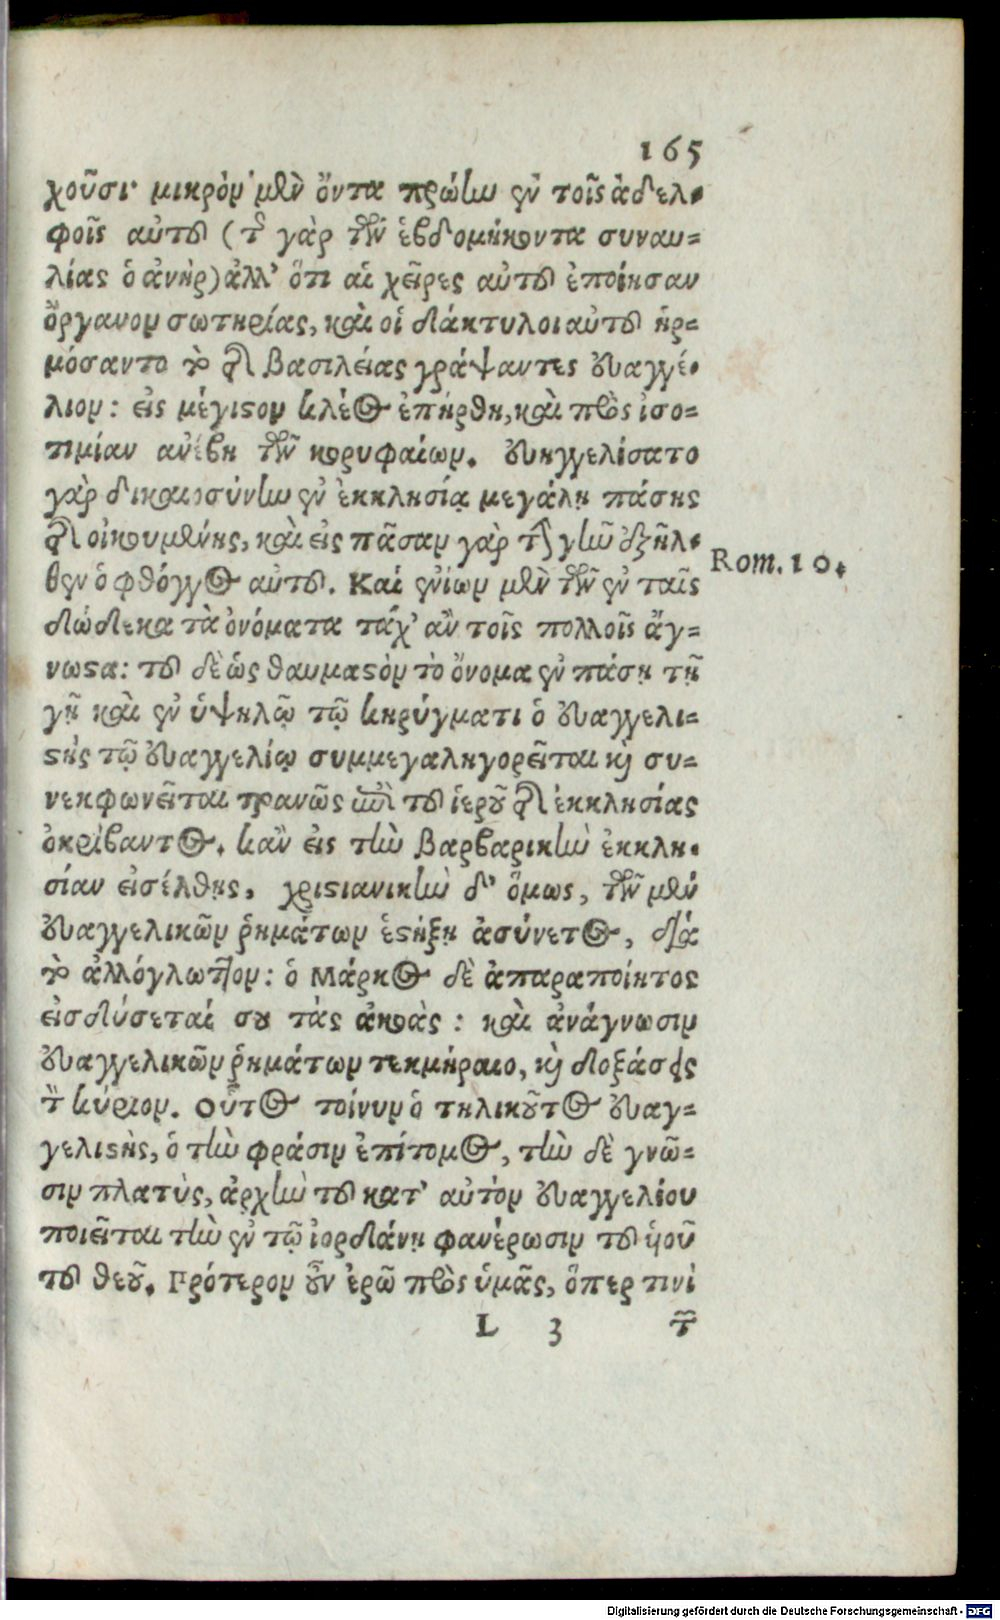 165
χοῦσι· μικρὸν μὲν ὄντα πρώην ἐν τοῖς ἀδελ-
φοῖς αὐτοῦ (τῆς γὰρ τῶν ἑβδομήκοντα συναυ-
λίας ὁ ἀνὴρ) ἀλλ' ὅτι αἱ χεῖρες αὐτοῦ ἐποίησαν
ὄργανον σωτηρίας, καὶ οἱ δάκτυλοι αὐτοῦ ἡρ-
μόσαντο τὸ τῆς βασιλείας γράψαντες εὐαγγέ-
λιον: εἰς μέγιστον κλέος ἐπήρθη, καὶ πρὸς ἰσο-
τιμίαν ἀνέβη τῶν κορυφαίων. εὐηγγελίσατο
γὰρ δικαιοσύνην ἐν ἐκκλησίᾳ μεγάλῃ πάσης
τῆς οἰκουμένης, καὶ εἰς πᾶσαν γὰρ τὴν γῆν ἐξῆλ-
θεν ὁ φθόγγος αὐτοῦ. Καὶ ἐνίων μὲν τῶν ἐν ταῖς
Rom. 10.
δώδεκα τὰ ὀνόματα τάχ' ἂν τοῖς πολλοῖς ἄγ-
νωστα: τοῦ δὲ ὡς θαυμαστὸν τὸ ὄνομα ἐν πάσῃ τῇ
γῇ καὶ ἐν ὑψηλῷ τῷ κηρύγματι ὁ εὐαγγελι-
στὴς τῷ εὐαγγελίῳ συμμεγαληγορεῖται καὶ συ-
νεκφωνεῖται τρανῶς ἐπὶ τοῦ ἱεροῦ τῆς ἐκκλησίας
ὀκρίβαντος. κἂν εἰς τὴν βαρβαρικὴν ἐκκλη-
σίαν εἰσέλθῃς, χριστιανικὴν δ' ὅμως, τῶν μὲν
εὐαγγελικῶν ῥημάτων ἑστήξῃ ἀσύνετος, διὰ
τὸ ἀλλόγλωττον: ὁ Μάρκος δὲ ἀπαραποίητος
εἰσδύσεταί σου τὰς ἀκοὰς: καὶ ἀνάγνωσιν
εὐαγγελικῶν ῥημάτων τεκμήραιο, καὶ δοξάσεις
τὸν κύριον. Οὗτος τοίνυν ὁ τηλικοῦτος εὐαγ-
γελιστὴς, ὁ τὴν φράσιν ἐπίτομος, τὴν δὲ γνῶ-
σιν πλατὺς, ἀρχὴν τοῦ κατ' αὐτὸν εὐαγγελίου
ποιεῖται τὴν ἐν τῷ ἰορδάνῃ φανέρωσιν τοῦ υἱοῦ
τοῦ θεοῦ. Πρότερον οὖν ἐρῶ πρὸς ὑμᾶς, ὅπερ τινὶ
L 3 τῶν